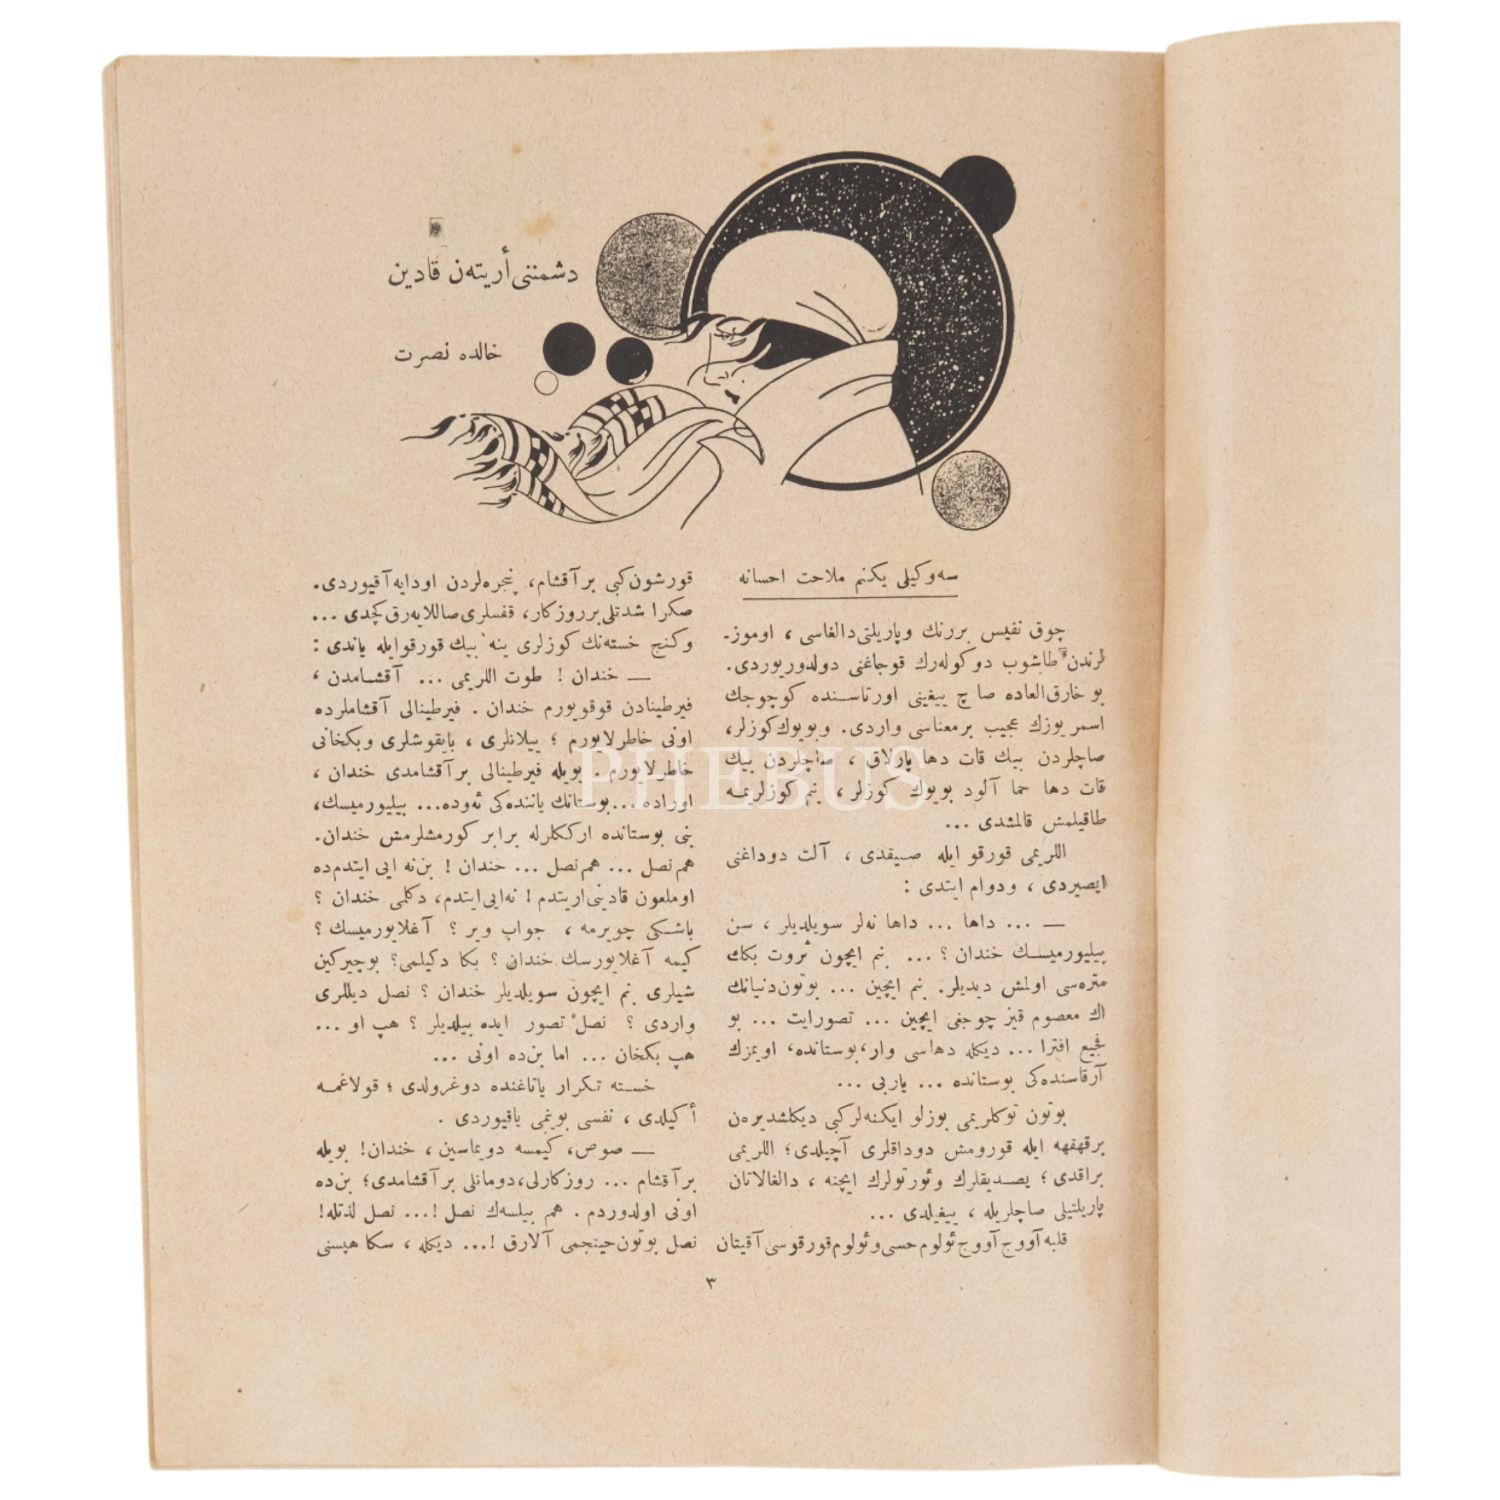 دشمننی أریته‌ن قادین
خالده نصرت
سه‌وکیلی یکنم ملاحت احسانه
چوق نفیس بررنك وپاریلتی دالغاسی ، اوموز-
لرندن طاشوب دوکوله‌رك قوجاغنی دولدوریوردی.
بو خارق‌العاده صاچ ییغینی اورتاسنده کوچوجك
اسمر یوزك عجیب برمعناسی واردی. وبویوك‌کوزلر،
صاچلردن بیك قات دها پارلاق ، صاچلردن بیك
قات دها حما آلود بویوك کوزلر ، بنم کوزلریمه
طاقیلمش قالمشدی ...
اللریمی قورقو ایله صیقدی ، آلت دوداغنی
ایصیردی ، ودوام ایتدی :
— ... داها ... داها نه‌لر سویلدیلر ، سن
بیلیورمیسك خندان ؟ ... بنم ایچون ثروت بكك
متره‌سی اولمش دیدیلر. بنم ایچین ... بوتون‌دنیانك
اك معصوم قیز چوجغی ایچین ... تصورایت ... بو
فجیع افترا ... دیکله دهاسی وار،بوستانده، اویمزك
آرقاسنده‌کی بوستانده ... یاربی ...
بوتون توکلریمی بوزلو ایکنه‌لرکبی دیکلشدیره‌ن
برقهقهه ایله قورومش دوداقلری آچیلدی؛ اللریمی
براقدی؛ یصدیقلرك وئورتولرك ایچنه ، دالغالاتان
پاریلتیلی صاچلریله ، ییغیلدی ...
قلبه آووج آووج ئولوم حسی وئولوم قورقوسی آقیتان
قورشون‌کبی برآقشام، پنجره‌لردن اودایه‌آقیوردی.
صکرا شدتلی برروزکار، قفسلری صاللایه‌رق کچدی ...
وکنج خسته‌نك کوزلری ینه بیك قورقوایله یاندی :
— خندان ! طوت اللریمی ... آقشامدن ،
فیرطینادن قوقویورم خندان . فیرطینالی آقشاملرده
اونی خاطرلایورم ؛ ییلانلری ، بایقوشلری وبکخانی
خاطرلایورم . بویله فیرطینالی برآقشامدی خندان ،
اوراده ... بوستانك یاننده‌کی ئه‌وده... بیلیورمیسك،
بنی بوستانده ارککلرله برابر کورمشلرمش خندان.
هم نصل ... هم نصل ... خندان ! بن‌نه ایی ایتدم‌ده
اوملعون قادینی اریتدم ! نه‌ایی‌ایتدم، دکلمی خندان ؟
باشکی چویرمه ، جواب ویر ؟ آغلایورمیسك ؟
کیمه آغلایورسك خندان ؟ بکا دکیلمی؟ بوچیرکین
شیلری بنم ایچون سویلدیلر خندان ؟ نصل دیللری
واردی ؟ نصل تصور ایده بیلدیلر ؟ هپ او ...
هپ بکخان ... اما بن‌ده اونی ...
خسته تکرار یاتاغنده دوغرولدی ؛ قولاغمه
أکیلدی ، نفسی بوینمی یاقیوردی .
— صوص، کیمسه دویماسین ، خندان! بویله
برآقشام ... روزکارلی،دومانلی برآقشامدی؛ بن‌ده
اونی اولدوردم . هم بیلسه‌ك نصل !... نصل لذتله!
نصل بوتون‌حینجمی آلارق !... دیکله ، سکا هپسنی
٣
PHEBUS